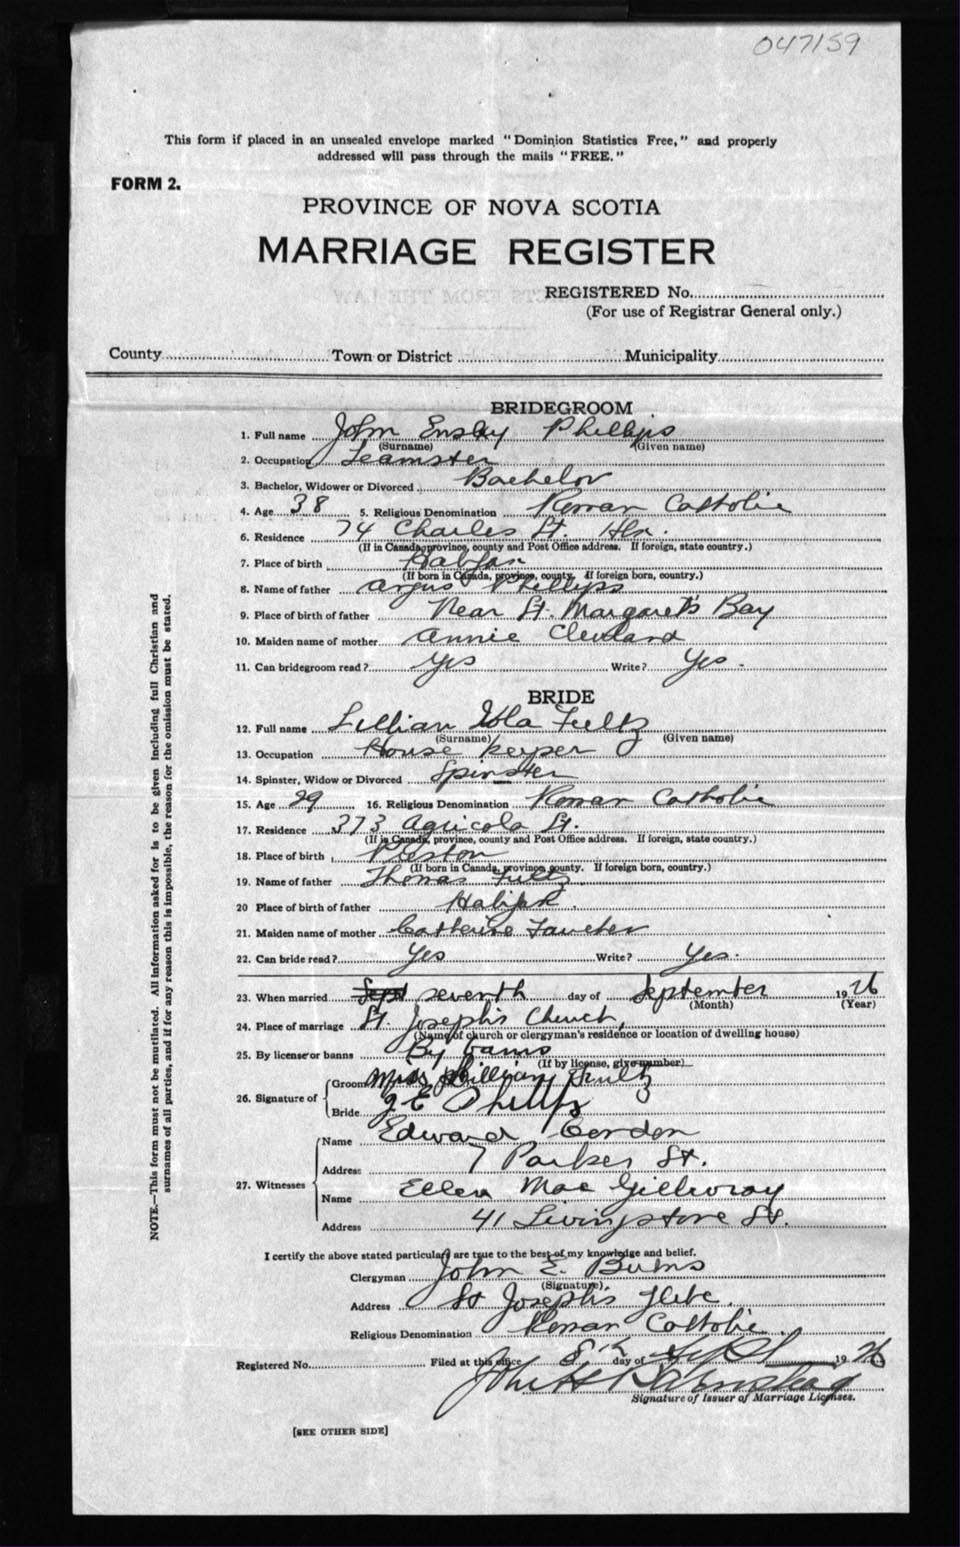 047159
This form if placed in an unsealed envelope marked "Dominion Statistics Free," and properly
addressed will pass through the mails "FREE."
FORM 2.
PROVINCE OF NOVA SCOTIA
MARRIAGE REGISTER
REGISTERED No.
(For use of Registrar General only.)
County Town or District Municipality
BRIDEGROOM
1. Full name John Ensley Phillips
(Surname) (Given name)
2. Occupation Teamster
3. Bachelor, Widower or Divorced Bachelor
4. Age 38 5. Religious Denomination Roman Catholic
6. Residence 74 Charles St. Hfx.
(If in Canada, province, county and Post Office address. If foreign, state country.)
7. Place of birth Halifax
(If born in Canada, province, county. If foreign born, country.)
8. Name of father Argus Phillips
9. Place of birth of father Near St. Margaret's Bay
10. Maiden name of mother Annie Cleveland
11. Can bridegroom read? Yes Write? Yes.
BRIDE
12. Full name Lillian Iola Fultz
(Surname) (Given name)
13. Occupation House keeper
14. Spinster, Widow or Divorced Spinster
15. Age 29 16. Religious Denomination Roman Catholic
17. Residence 373 Agricola St.
(If in Canada, province, county and Post Office address. If foreign, state country.)
18. Place of birth Preston
(If born in Canada, province, county. If foreign born, country.)
19. Name of father Thomas Fultz
20 Place of birth of father Halifax.
21. Maiden name of mother Catherine
22. Can bride read? Yes Write? Yes.
23. When married Sept seventh day of September 1926
(Month) (Year)
24. Place of marriage St. Joseph's Church,
(Name of church or clergyman's residence or location of dwelling house)
25. By license or banns By banns
(If by license, give number)
26. Signature of Groom Miss Lillian Fultz
Bride J E Phillips
27. Witnesses Name Edward Gordon
Address 7 Parker St.
Name Ellen Mac Gillivray
Address 41 Livingstone St.
I certify the above stated particulars are true to the best of my knowledge and belief.
Clergyman John E. Burns
(Signature)
Address St Joseph's Glebe.
Religious Denomination Roman Catholic
Registered No. Filed at this office 8th day of Sept 1926
John H
Signature of Issuer of Marriage Licenses.
[SEE OTHER SIDE]
NOTE.—This form must not be mutilated. All information asked for is to be given including full Christian and
surnames of all parties, and if for any reason this is impossible, the reason for the omission must be stated.